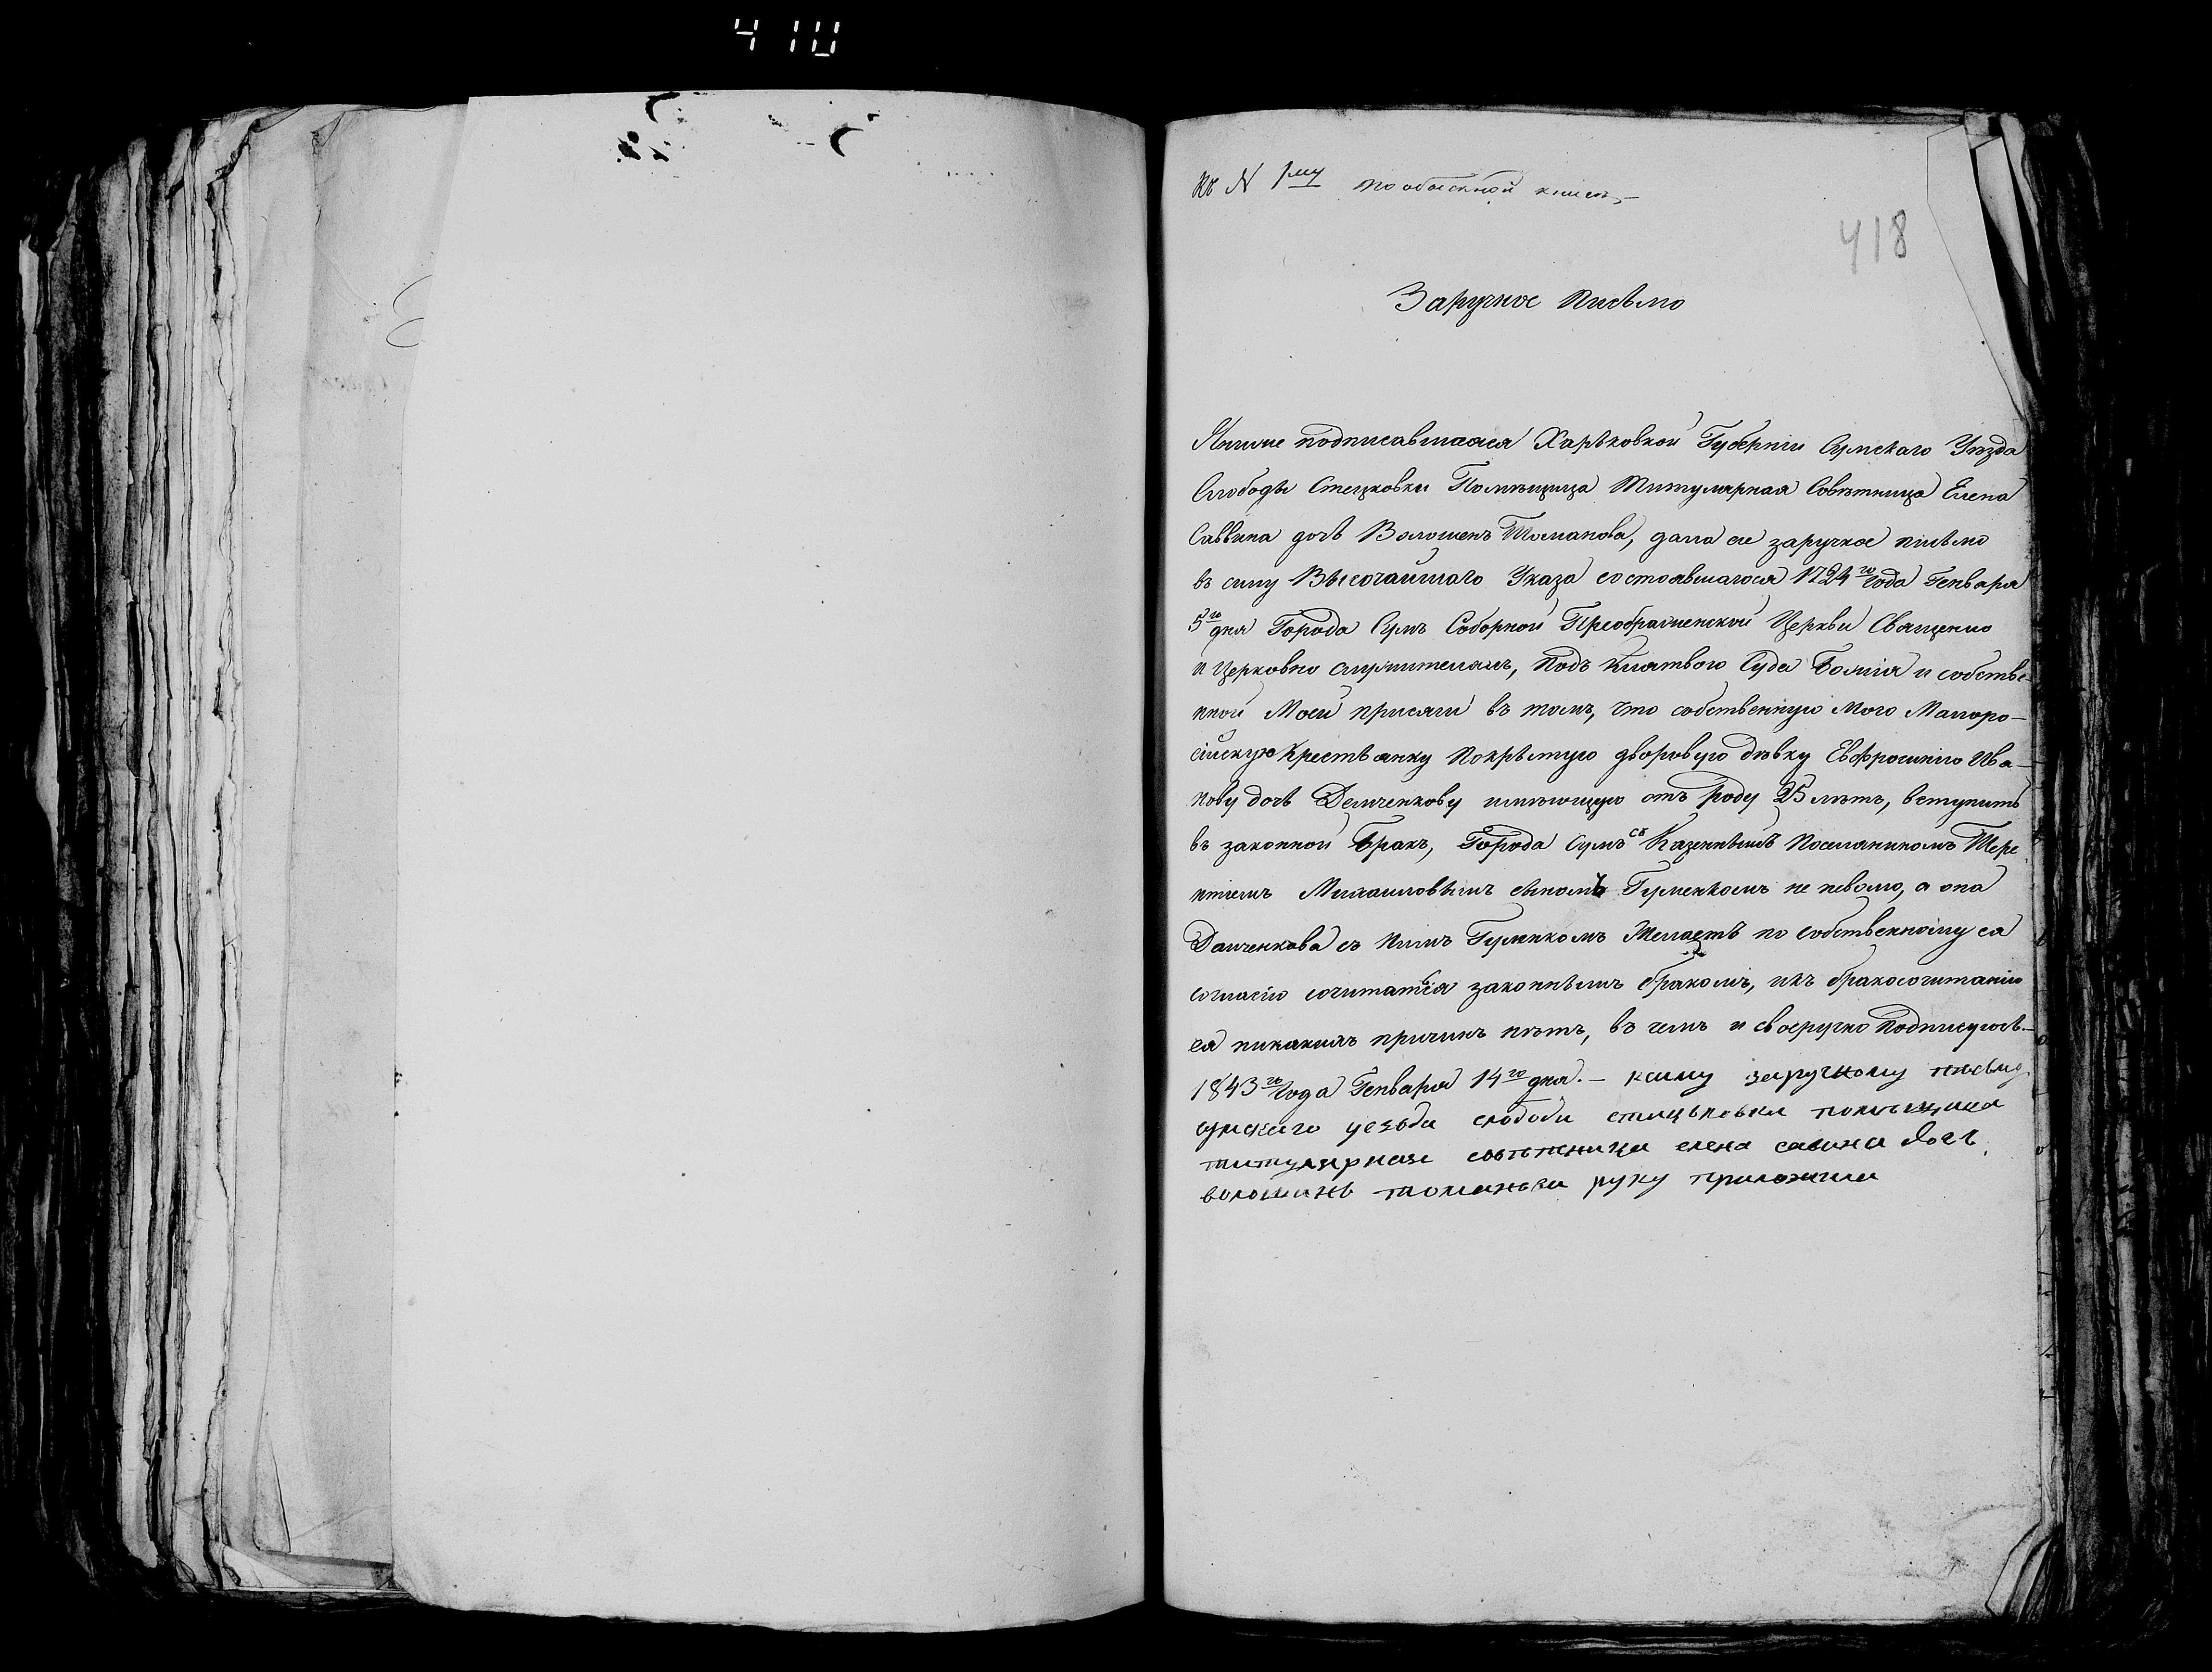 410
къ № 1му по обыскной книгѣ
418
Заручное Письмо
Ниже подписавшаяся Харьковкой Губерніи Сумскаго Уѣзда
Слободы Стецковки Помѣщица Титулярная Совѣтница Елена
Саввина дочь Волошенъ Томанова, дала сіе заручное письмо
въ силу Высочайшаго Указа состоявшагося 1724го года Генваря
5го дня Города Сумъ Соборной Преображенской Церкви Священно
и Церковно служителямъ, подъ Клятвою Суда Божія и собстве-
нной Моей присяги въ томъ, что собственную Мою Малоро-
сійскую Крестьянку Покрытую дворовую дѣвку Евфросинію Ива-
нову дочь Демченкову имѣющую отъ роду 25 лѣтъ, вступить
въ законной Бракъ, Города Сумъ съ Казеннымъ Поселяниномъ Тере
нтіемъ Михаиловымъ сыномъ Гуменкомъ не неволю, а она
Демченкова съ нимъ Гуменкомъ Желаетъ по собственному ея
согласію сочитатся законнымъ бракомъ, икъ бракосочитанію
ея никакихъ причинъ нѣтъ, въ чемъ и своеручно подписуюсь-
1843го года Генваря 14го дня. - ксиму заручному писму
сумскаго уезъда слободи стецъковки помѣщица
титулярная совѣтница елена савина дочь
волошинъ томанъва руку приложила